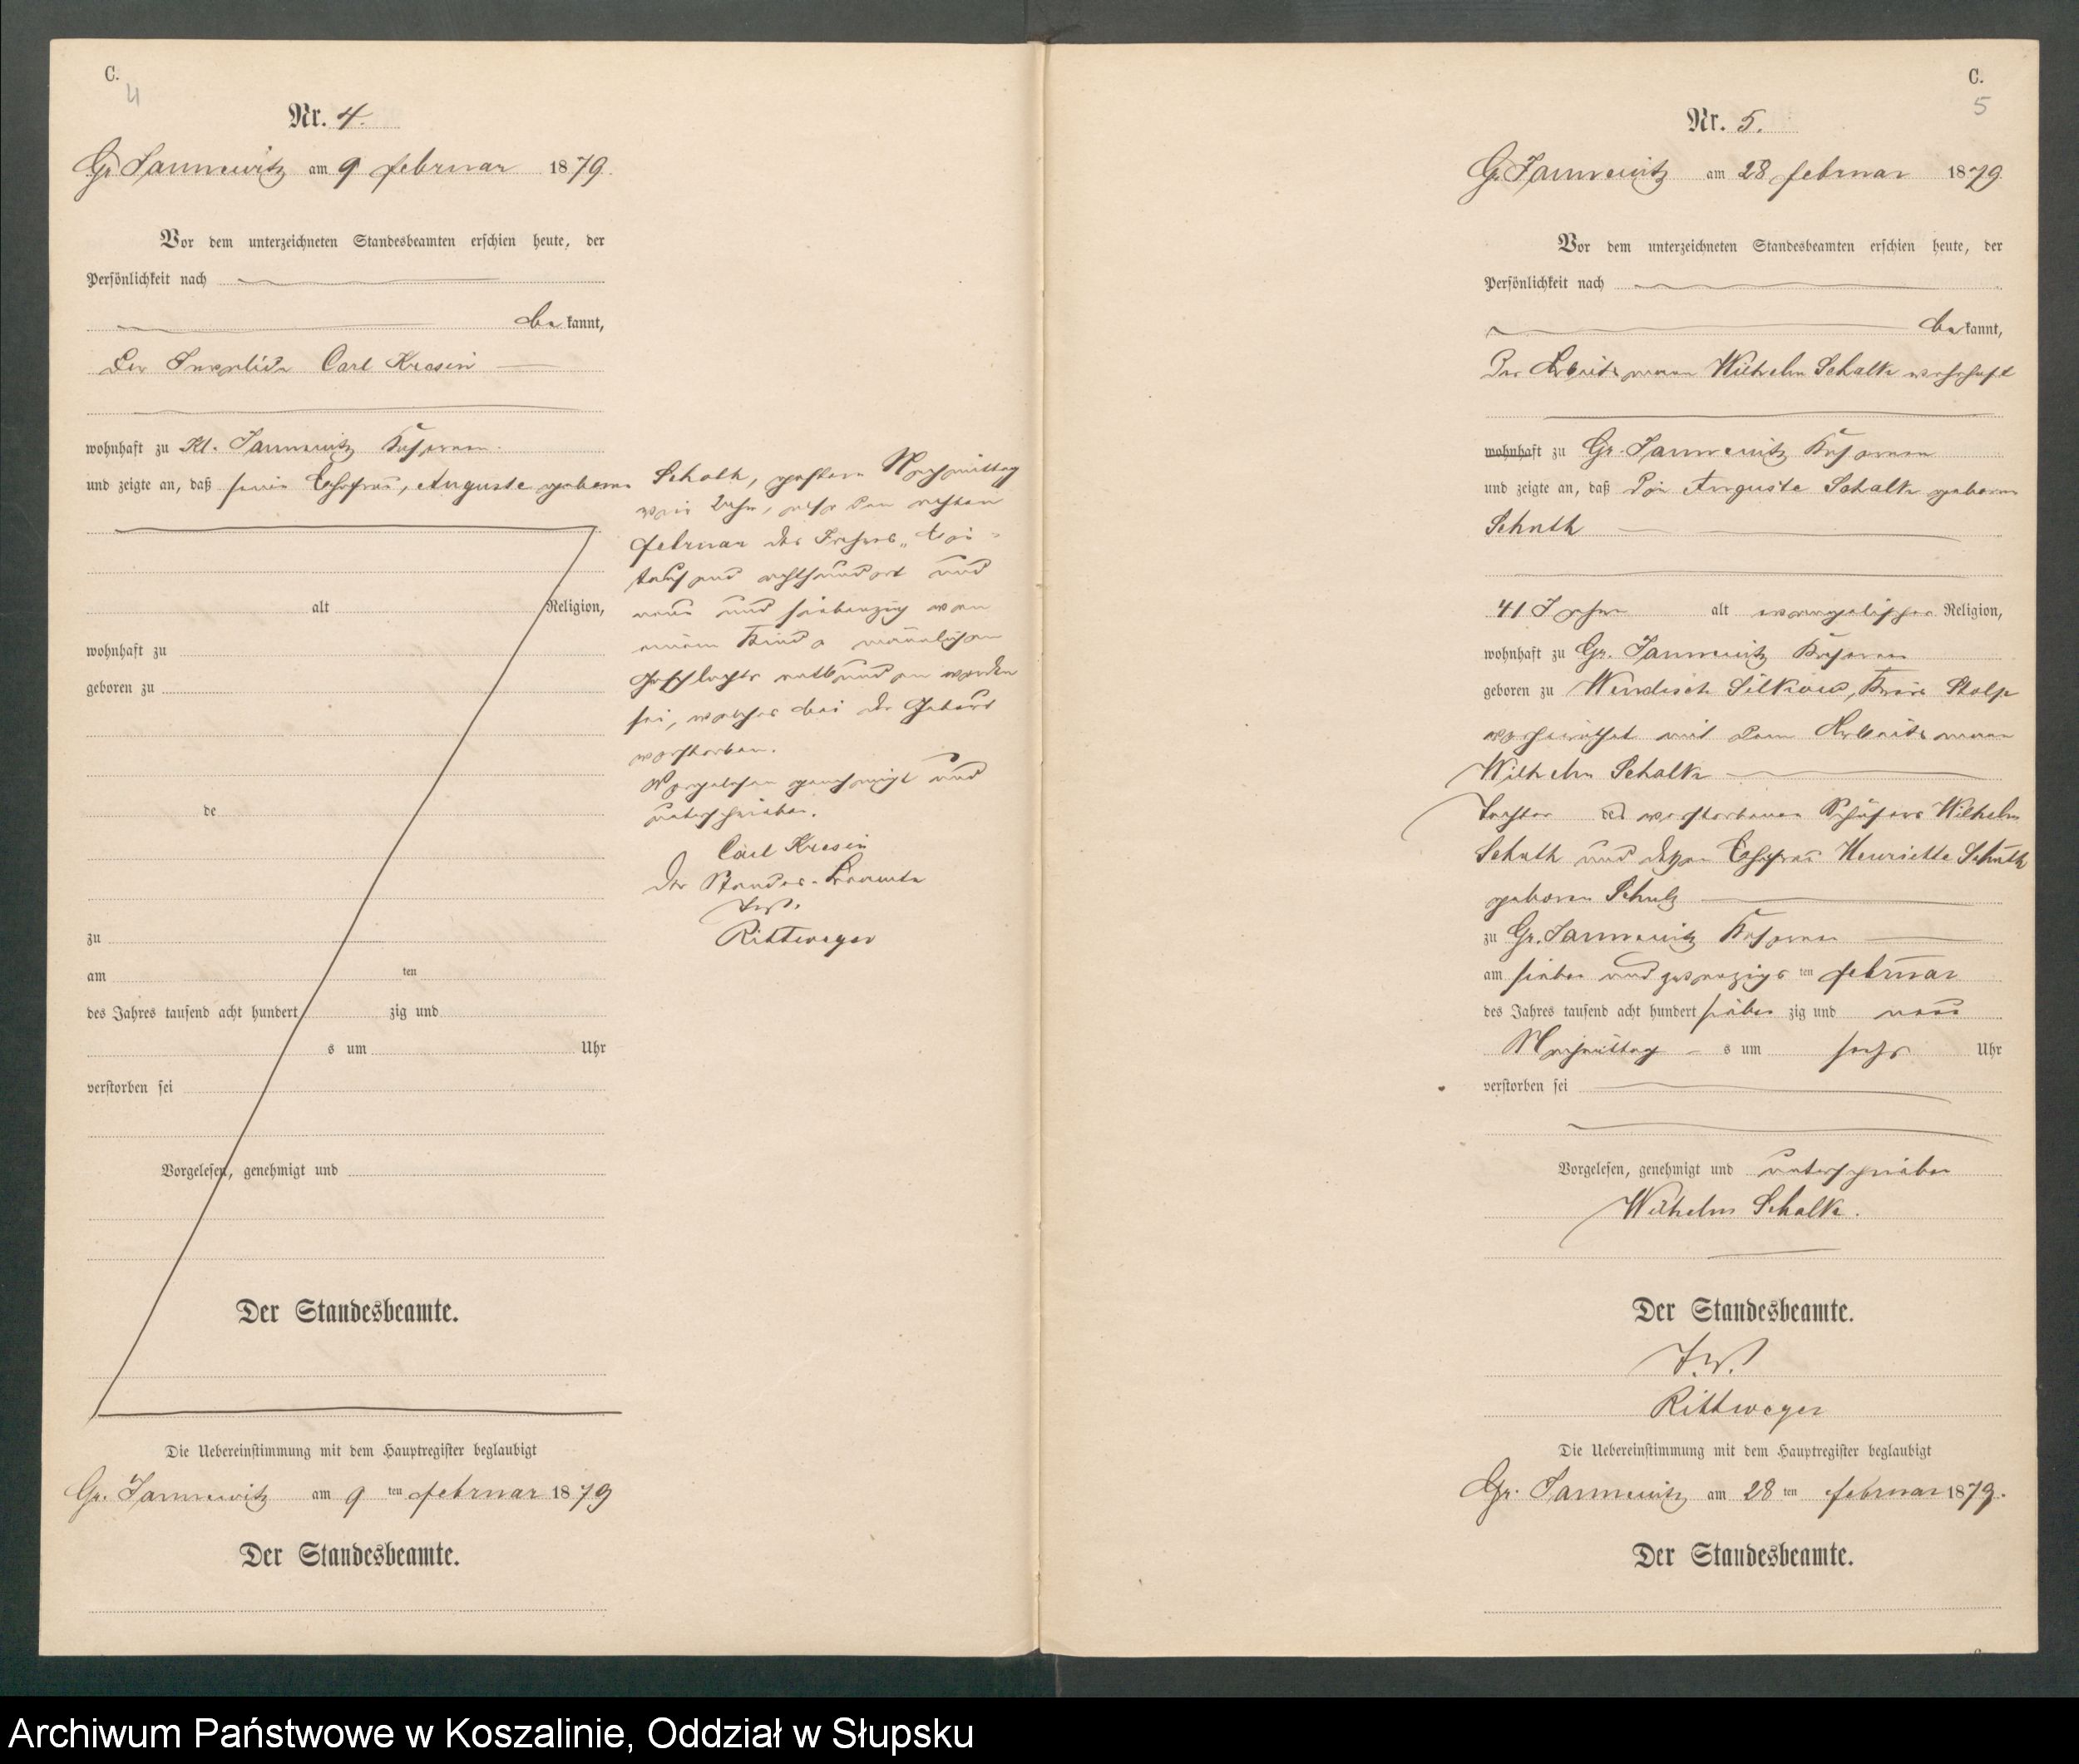 C.
4
Nr. 4.
Gr. Jannewitz am 9 Februar 1879.
Vor dem unterzeichneten Standesbeamten erschien heute, der
Persönlichkeit nach
be kannt,
Der Invalide Carl Kresin
wohnhaft zu Kl. Jannewitz
und zeigte an, daß seine Ehefrau, Auguste geborne
alt Religion,
wohnhaft zu
geboren zu
de
zu
am ten
des Jahres tausend acht hundert zig und
s um Uhr
verstorben sei
Vorgelesen, genehmigt und
Der Standesbeamte.
Die Uebereinstimmung mit dem Hauptregister beglaubigt
Gr. Jannewitz am 9 ten Februar 1879
Der Standesbeamte.
gestern Nachmittag
Uhr, den achten
Februar des Jahres Ein-
tausend achthundert und
neun und siebenzig von
einem Kinde männlichen
Geschlechts entbunden worden
sei, welches bei der Geburt
verstorben.
Vorgelesen genehmigt und
unterschrieben.
Carl Kresin
Der Standes-Beamte
Rittweger
C.
5
Nr. 5.
Gr. Jannewitz am 28 Februar 1879
Vor dem unterzeichneten Standesbeamten erschien heute, der
Persönlichkeit nach
be kannt,
Der Arbeitsmann Wilhelm Schalk wohnhaft
wohnhaft zu Gr. Jannewitz
und zeigte an, daß die Auguste Schalk geborne
Schuth
41 Jahre alt evangelischer Religion,
wohnhaft zu Gr. Jannewitz
geboren zu Wendisch Silkow, Kreis Stolp
verheirathet mit dem Arbeitsmann
Wilhelm Schalk
Tochter des verstorbenen Schäfers Wilhelm
Schuth und dessen Ehefrau Henriette Schuth
geborne Schulz
zu Gr. Jannewitz
am sieben und zwanzigs ten Februar
des Jahres tausend acht hundert sieben zig und neun
Nachmittag s um sechs Uhr
verstorben sei
Vorgelesen, genehmigt und unterschrieben
Wilhelm Schalk.
Der Standesbeamte.
Rittweger
Die Uebereinstimmung mit dem Hauptregister beglaubigt
Gr. Jannewitz am 28 ten Februar 1879.
Der Standesbeamte.
Archiwum Państwowe w Koszalinie, Oddział w Słupsku